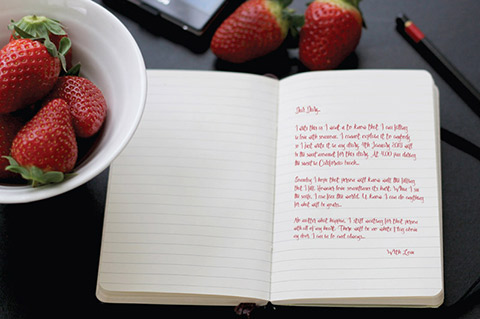 Dear Diary,
I write this as I want u to know that I am falling
in love with someone. I cannot explain it to anybody
so I just write it in my diary. 9th January 2013 will
be the sweet moment for this diary. At 4.00 pm during
the sweet in California beach.
Secretly, I hope that someone will know well this feeling
that I fall. However love sometimes its hurt. When I see
the smile, I can face this world. U know I can do anything
for what will be
No matter what happen, I still waiting for that person
with all of my heart. There will be no where I stay alone
my dear. I can be always...
With Love